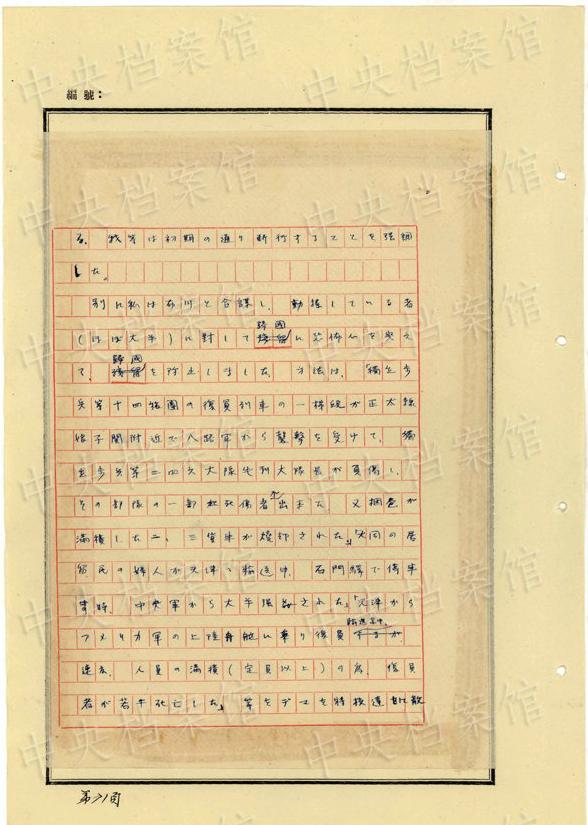 編號：
る。我等は初期の通り断行することを強調
した。
別に私は古川と合謀し、動揺している者
（ほぼ大半）に対して帰國に恐怖心を与え
て、帰國を阻止しました。方法は、「独立歩
兵第十四旅團の復員列車の一梯級が正太線
娘子関附近で八路軍から襲撃を受けて、独
立歩兵第二四大隊 大隊長が負傷し、
その部隊の一部 死傷者も出来た。又 が
満積した二、三貨車が焼却された」「大同の居
留民の婦人が天津へ輸送中、石門駅で停車
する時、中央軍から大半強姦された」「天津から
アメリカ軍の上陸舟艇に乗り復員輸送中、が
途上、人員の満積（定員以上）の為、復員
者が若干死亡した」等をデマを特務連 散
第21頁
中央档案馆